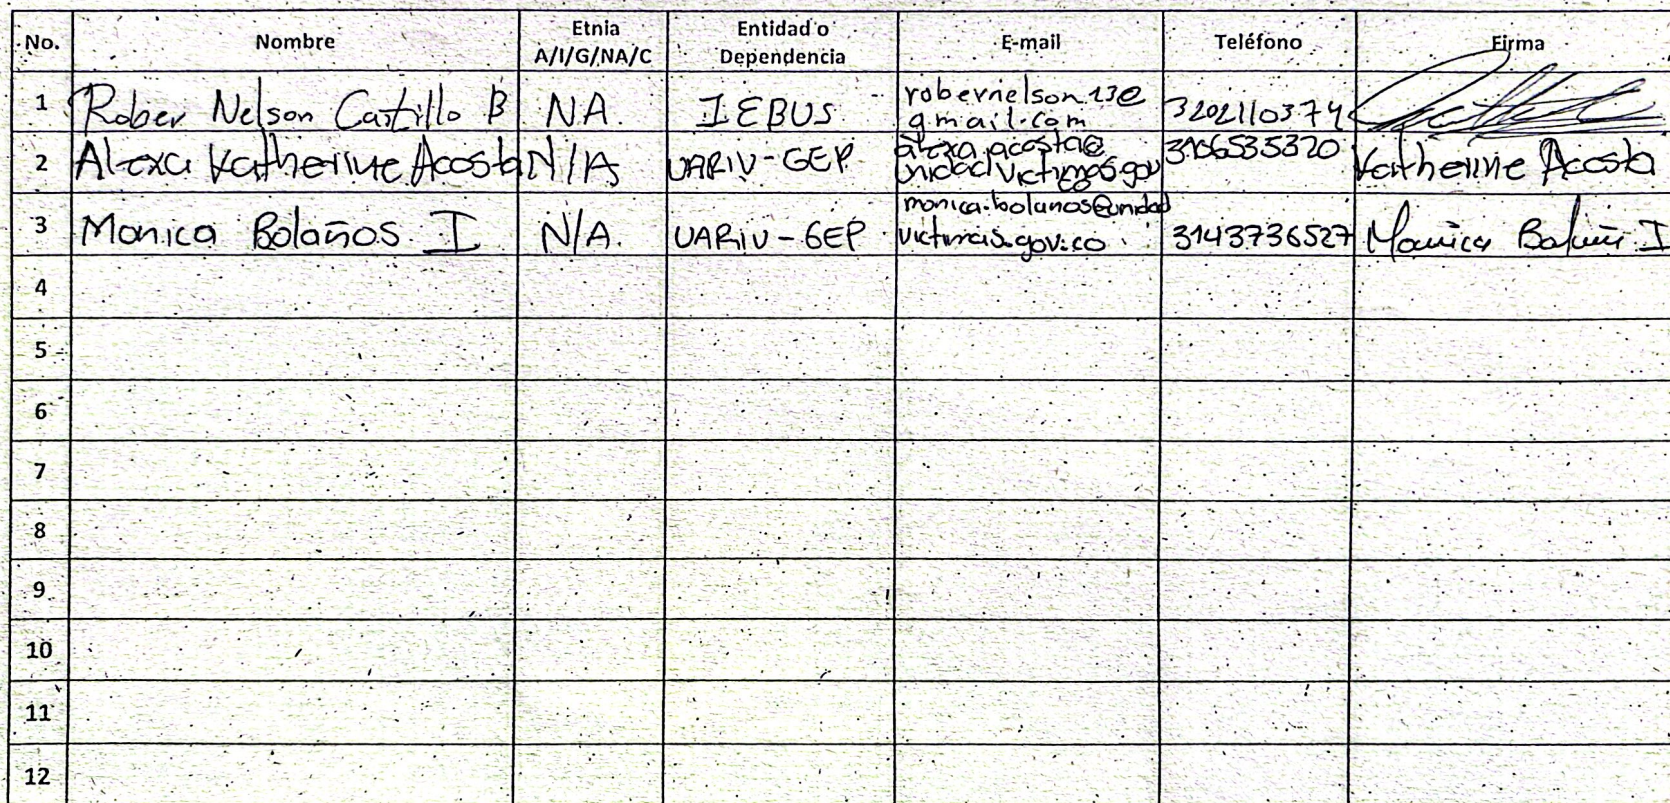 No. Nombre Etnia A/I/G/NA/C Entidad o Dependencia E-mail Teléfono Firma
1 Rober Nelson Castillo B NA. IEBUS robernelson13@gmail.com 3202110374
2 Alexa Katherine Acosta N/A UARIV-GEP alexa.acosta@unidadvictimas.gov 3106535320 Katherine Acosta
3 Monica Bolaños I N/A. UARIV-GEP monica.bolanos@unidadvictimas.gov.co 3143736527 Monica Bolaños I
4
5
6
7
8
9
10
11
12